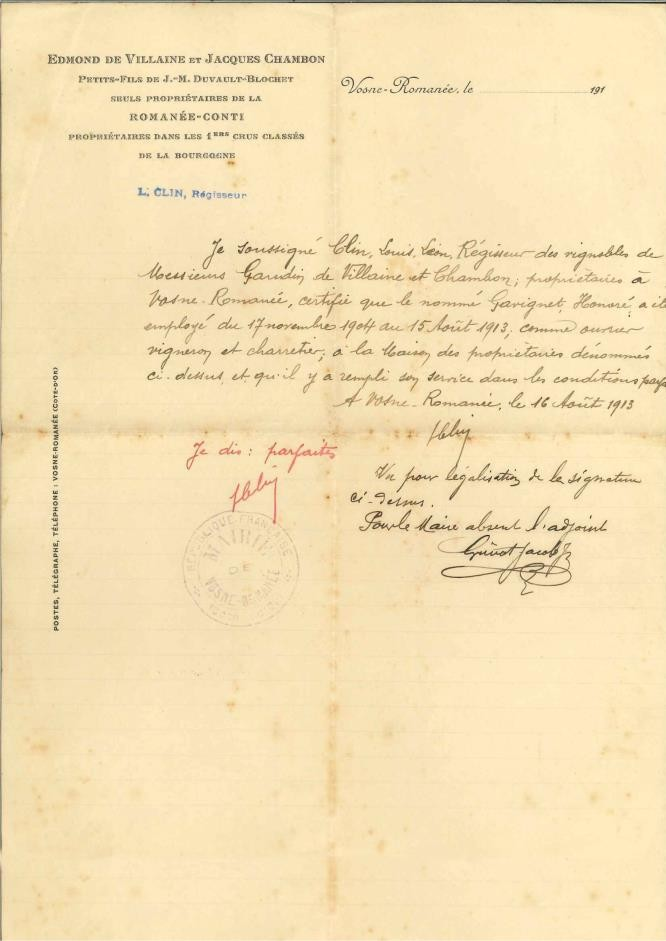 EDMOND DE VILLAINE ET JACQUES CHAMBON
PETITS-FILS DE J.-M. DUVAULT-BLOCHET
SEULS PROPRIÉTAIRES DE LA
ROMANÉE-CONTI
PROPRIÉTAIRES DANS LES 1ERS CRUS CLASSÉS
DE LA BOURGOGNE
L. CLIN, Régisseur
Vosne-Romanée, le 191
Je soussigné Clin, Louis, Léon, Régisseur des vignobles de
Messieurs Gaudin de Villaine et Chambon, propriétaires à
Vosne-Romanée, certifie que le nommé Gavignet, Honoré, a é
employé du 17 novembre 1904 au 15 Août 1913, comme ouvrier
vigneron et charretier, à la Maison des propriétaires dénommés
ci-dessus, et qu'il y a rempli son service dans les conditions parfa
A Vosne-Romanée, le 16 Août 1913
Je dis : parfaites
Vu pour légalisation de la signature
ci-dessus.
Pour le Maire absent l'adjoint
Grivot Jacob
RÉPUBLIQUE FRANÇAISE
MAIRIE
DE
VOSNE-ROMANÉE
POSTES, TÉLÉGRAPHE, TÉLÉPHONE : VOSNE-ROMANÉE (CÔTE-D'OR)